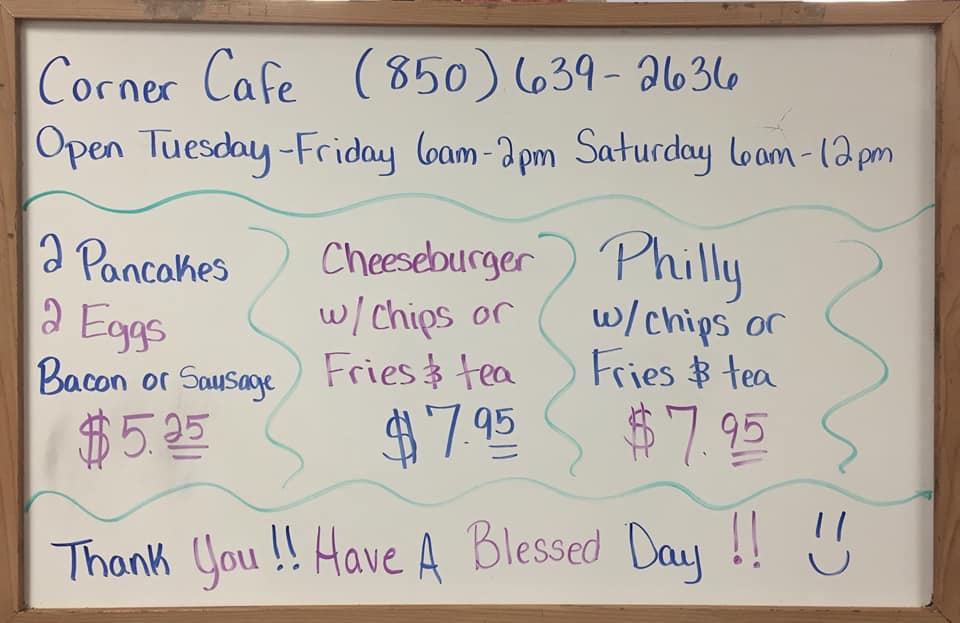 Corner Cafe (850) 639-2636
Open Tuesday-Friday 6am-2pm Saturday 6am-12pm
2 Pancakes
2 Eggs
Bacon or Sausage
$5.25
Cheeseburger
w/chips or
Fries & tea
$7.95
Philly
w/chips or
Fries & tea
$7.95
Thank You!! Have A Blessed Day!!